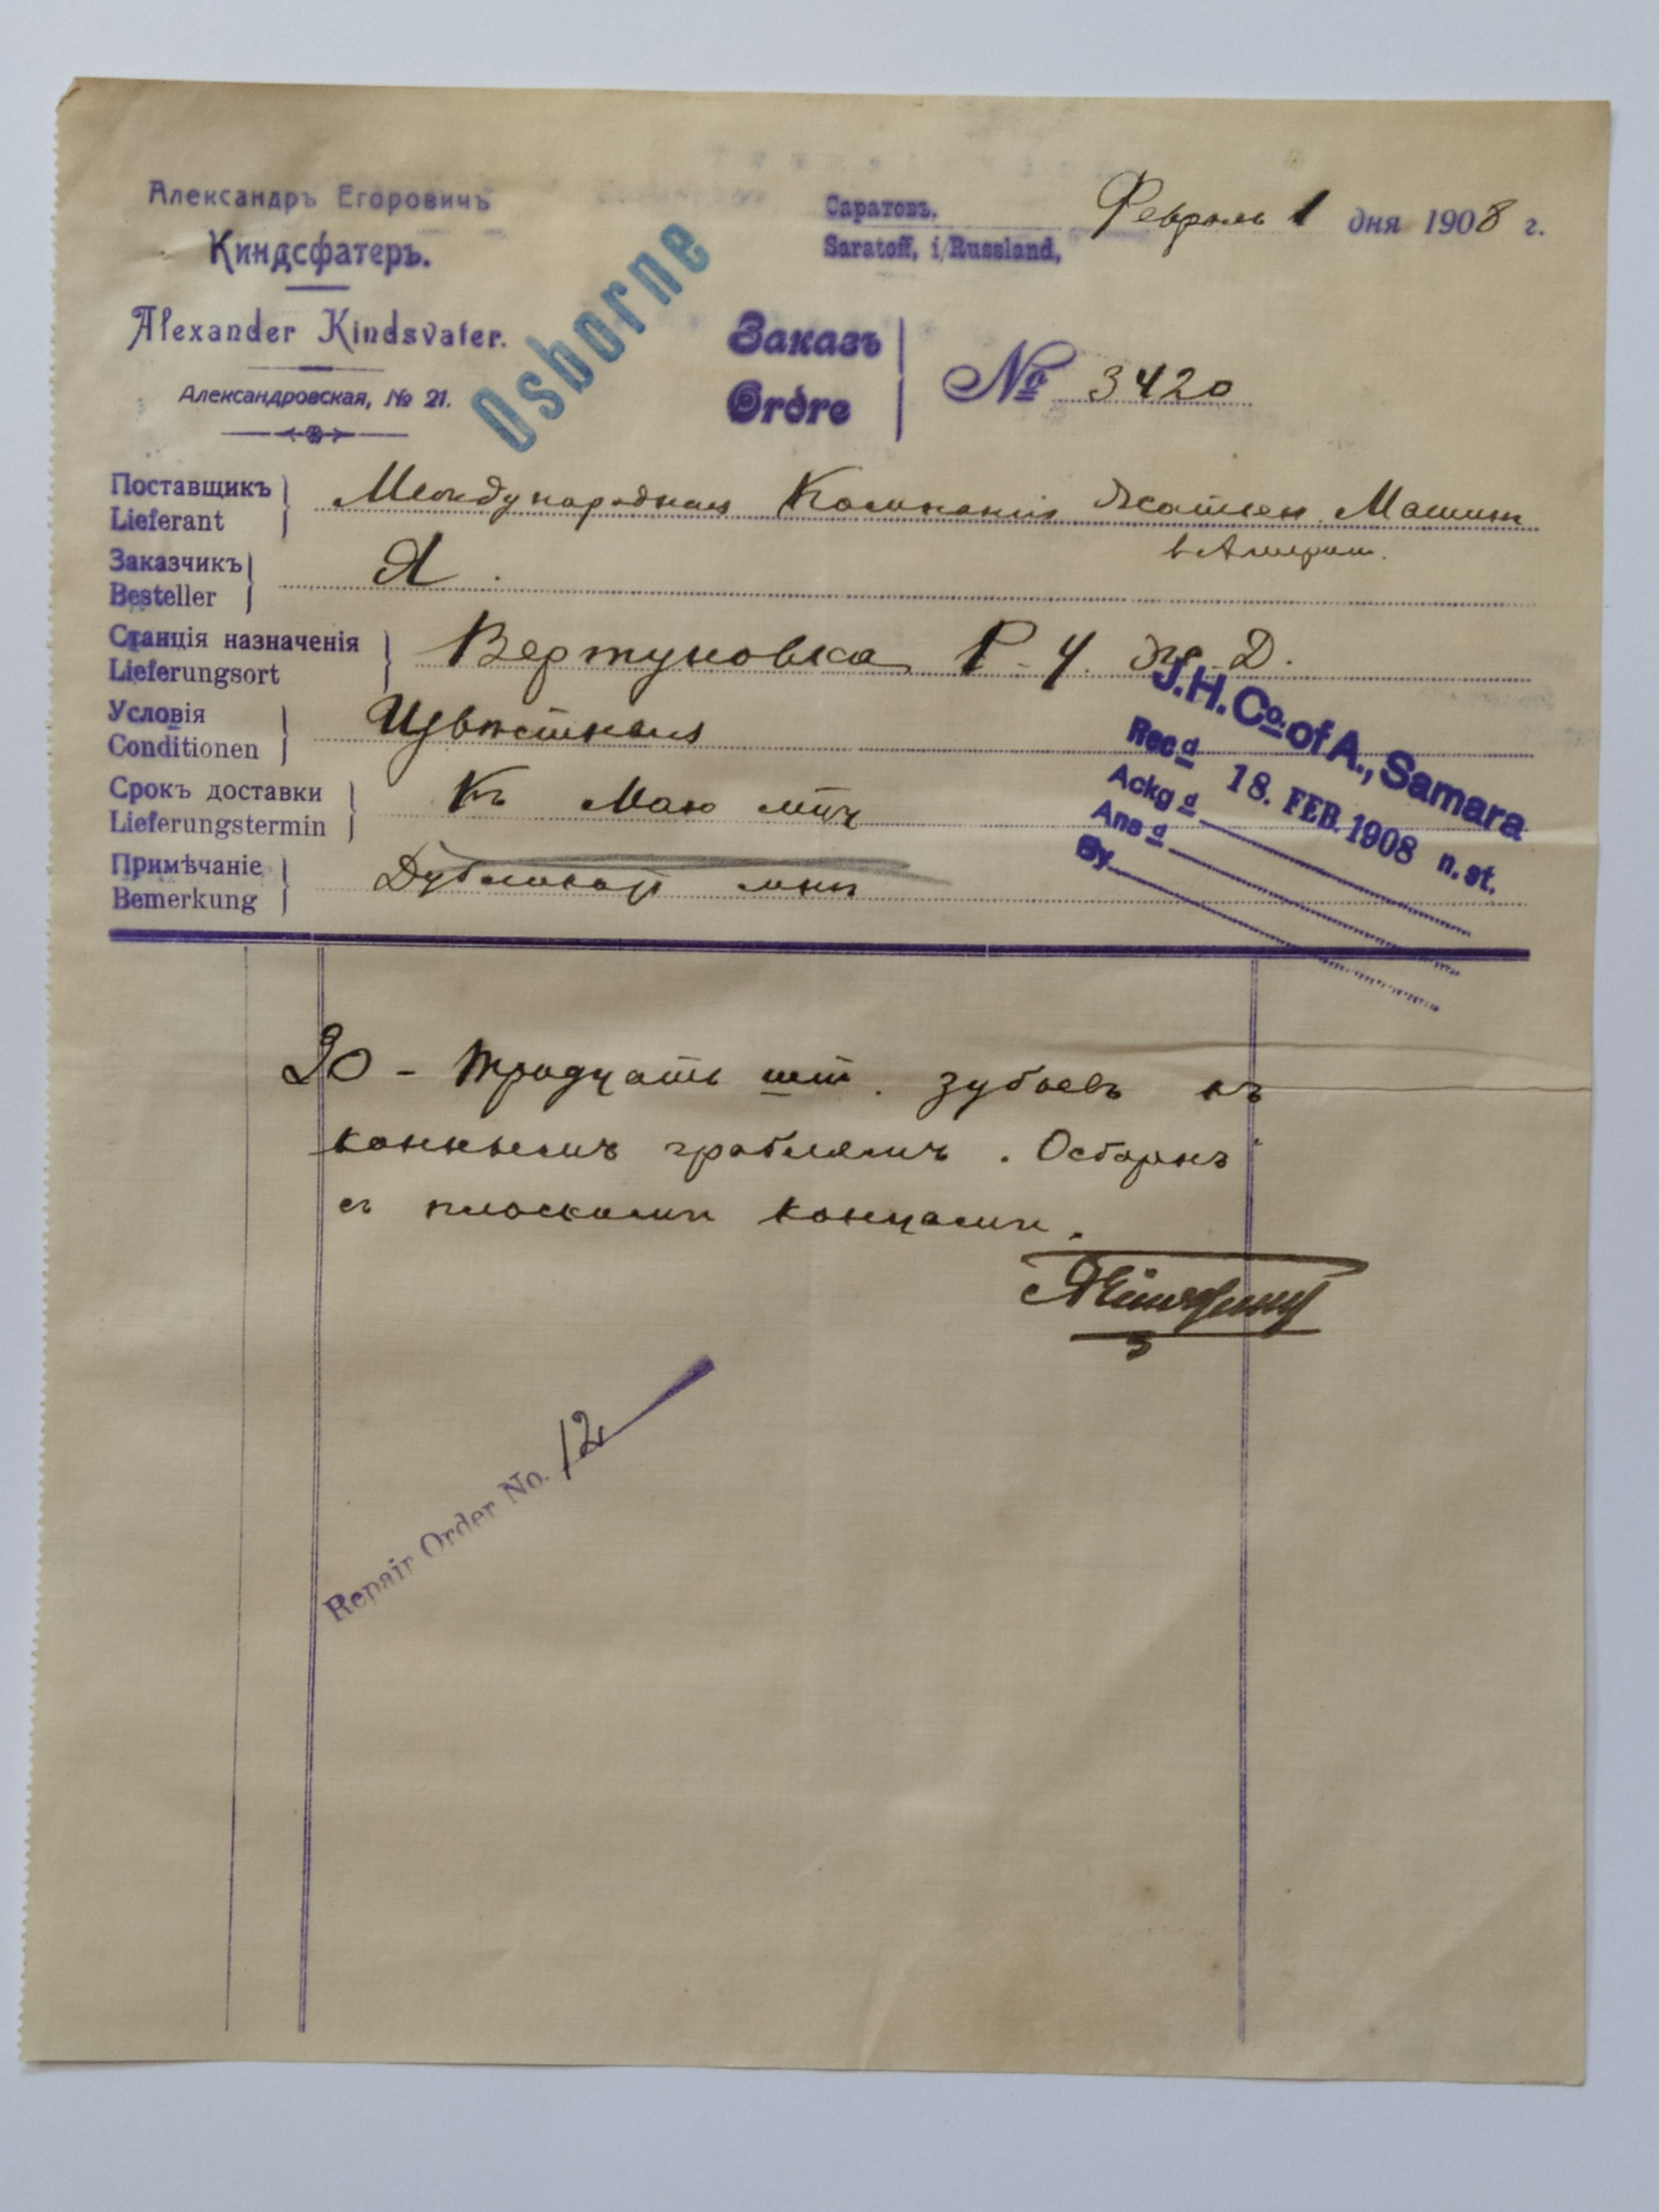 Александръ Егоровичъ
Киндсфатеръ.
Alexander Kindsvater.
Александровская, № 21.
Osborne
Саратовъ,
Saratoff, i/Russland,
Февраль 1 дня 1908 г.
Заказъ
Ordre
№ 3420
Поставщикъ
Lieferant
Международная Компанія Жатвен. Машин
в Америк.
Заказчикъ
Besteller
Я.
Станція назначенія
Lieferungsort
Вертуновка Р-У. ж. Д.
Условія
Conditionen
Извѣстныя
Срокъ доставки
Lieferungstermin
Къ Маю
Примѣчаніе
Bemerkung
Дубликатъ мнѣ
J.H. Co. of A., Samara
Recd 18. FEB. 1908 n. st.
Ackgd
Ansd
By
30 - Тридцать шт. зубьевъ къ
коннымъ граблямъ. Осборнъ
съ плоскими концами.
Repair Order No. 12